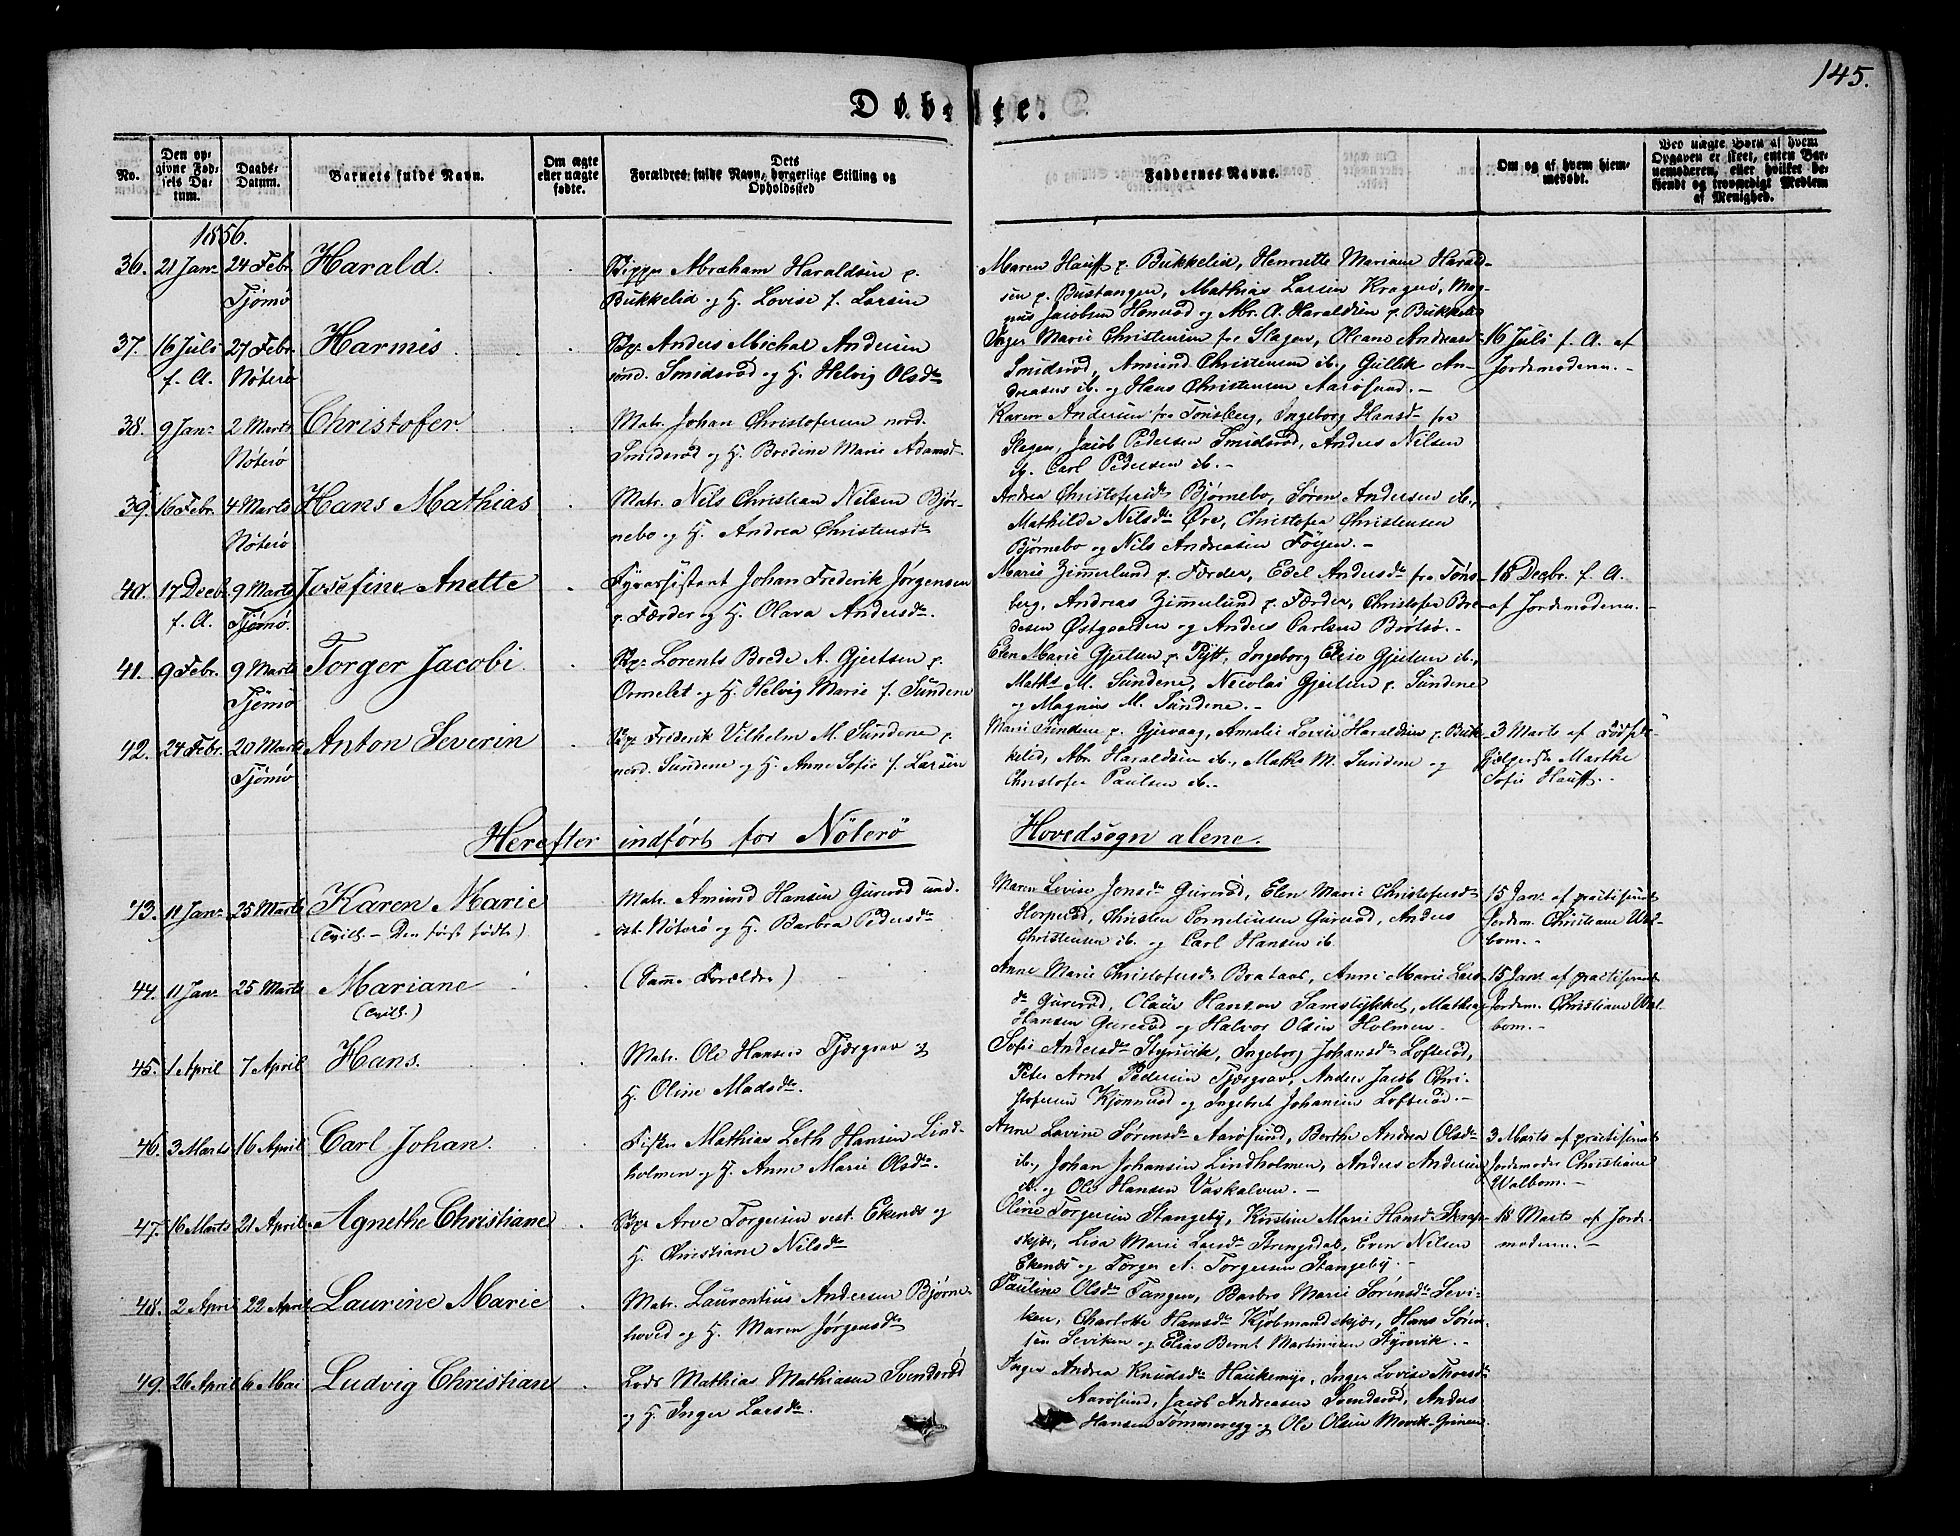 145.
Døbte.
No.
Den opgivne Fødsels Datum.
Daabs-Datum.
Barnets fulde Navn.
Om ægte eller uægte fødte.
Forældres fulde Navn, borgerlige Stilling og Opholdssted
Faddernes Navne.
Om og af hvem hjemmedøbt.
Ved uægte Børn af hvem Opgaven er skeet, enten Barnemoderen, eller hvilket bekjendt og troværdigt Medlem af Menighed.
1856.
36. 21 Jan. 24 Febr. Tjømø
Harald.
Abraham Haraldsen p.
Bukkelid og H. Lovise f. Larsen
Maren Hauff p. Bukkelid, Henrette Mariane Harald-
sen p. Bustangen, Mathias Larsen Kragerø, Mag-
nus Jacobsen Honerød og Abr. A. Haraldsen p. Bukkelid
37. 16 Juli f. A. 27 Febr. Nøterø
Harmis
Anders Michal Andersen
sønd. Smidsrød og H. Helvig Olsdr
Inger Marie Christensen fra Slagen, Oleane Andreas-
Smidsrød, Amund Christensen ib., Gullik An-
dreasen ib. og Hans Christensen Aarøsund. -
16 Juli f. A. af
Jordemoderen. -
38. 9 Jan. 2 Marts Nøterø
Christofer.
Matr. Johan Christofersen nord.
Smidsrød og H. Bredine Marie Adamsd.
Karen Andersen fra Tønsberg, Ingeborg Hansd. fra
Slagen, Jacob Pedersen Smidsrød, Anders Nilsen
ib. Carl Pedersen ib. -
39. 16 Febr. 4 Marts Nøterø
Hans Mathias
Matr. Nils Christian Nilsen Bjør-
nebo og H. Andrea Christensdr
Andrea Christofersdr Bjørnebo, Søren Andersen ib.,
Mathilde Nilsdr Øre, Christofer Christensen
Bjørnebo og Nils Andreasen Føyen. -
40. 17 Decb. f. A. 9 Marts Tjømø.
Josefine Anette
Fyrassistent Johan Frederik Jørgensen
p. Færder og H. Olava Andersdr.
Marie Zimmerlund p. Færder, Edel Andersdr fra Tøns-
berg, Andreas Zimmerlund p. Færder, Christofer Bre-
desen Østgaarden og Anders Carlsen Brøtsø. -
18 Decbr. f. A.
af Jordemoderen. -
41. 9 Febr. 9 Marts Tjømø
Torger Jacobi
Lorents Brede A. Gjertsen p.
Ormelet og H. Helvig Marie f. Sundene
Elen Marie Gjertsen p. Pytt, Ingeborg Elise Gjertsen ib.,
Maths M. Sundene, Nicolai Gjertsen p. Sundene
og Magnus M. Sundene. -
42. 24 Febr. 20 Marts Tjømø
Anton Severin
Frederik Vilhelm M. Sundene p.
nord. Sundene og H. Anne Sofie f. Larsen
Marie Sundene p. Gjervaag, Amalie Lovise Haraldsen p. Buk-
kelid, Abr. Haraldsen ib., Maths M. Sundene og
Christofer Paulsen ib. -
3 Marts af Fødsels-
hjælperske Marthe
Sofie Hauff. -
Herefter indført for Nøterø Hovedsogn alene.
43. 11 Jan. 25 Marts
Karen Marie
(Tvill. - Den først fødte)
Matr. Amund Hansen Gurerød und.
øst. Nøterø og H. Barbra Pedersdr
Maren Lovise Jensdr Gurerød, Elen Marie Christofersdr
Horperød, Christen Corneliussen Gurerød, Anders
Christensen ib. og Carl Hansen ib.
15 Jan. af practiserende
Jordem. Christiane Wal-
bom. -
44. 11 Jan. 25 Marts
Mariane
(Tvill.)
(Samme Forældre)
Anne Marie Christofersdr Brataas, Anne Marie Lars-
dr Gurerød, Claus Hansen Samstykket, Mathias
Hansen Gurerød og Halvor Olsen Holmen.
15 Jan. af practiserende
Jordem. Christiane Wal-
bom. -
45. 1 April 7 April
Hans.
Matr. Ole Hansen Tjærgrav og
H. Oline Madsdr.
Sofie Andersdr Styrsvik, Ingeborg Johansdr Lofterød,
Peter Arnt Pedersen Tjærgrav, Anders Jacob Chri-
stofersen Kjønnerød og Ingebret Johansen Lofterød. -
46. 3 Marts 16 April
Carl Johan.
Fisker Mathias Leth Hansen Lind-
holmen og H. Anne Marie Olsdr.
Anne Lavine Sørensdr Aarøsund, Berthe Andrea Olsdr
ib., Johan Johansen Lindholmen, Anders Andersen
ib. og Ole Hansen Vaskalven. -
3 Marts af practiserende
Jordemoder Christiane
Walbom. -
47. 16 Marts 21 April
Agnethe Christiane
Arve Torgersen vest. Ekenes og
H. Christiane Nilsdr
Oline Torgersen Stangeby, Kirstine Marie Hansd.
skjær, Lisa Marie Larsdr Strengsdal, Even Nilsen
Ekenes og Torger N. Torgersen Stangeby. -
18 Marts af Jorde-
moderen. -
48. 2 April 22 April
Laurine Marie
Matr. Laurentius Andersen Bjørne-
hoved og H. Maren Jørgensdr
Pauline Olsdr Tangen, Barbro Marie Sørensdr Sevi-
ken, Charlotte Hansdr Kjøbmandskjær, Hans Søren-
sen Seviken og Elias Bernt Martinisen Styrsvik. -
49. 26 April 6 Mai
Ludvig Christian
Lods Mathias Mathiasen Svendsrød
og H. Inger Larsdr.
Inger Andrea Knudsdr Haukemyr, Inger Lovise Thorsdr
Aarøsund, Jacob Andreasen Svendsrød, Anders
Hansen Tømmeregg og Ole Olsen Mevik-Grinen.